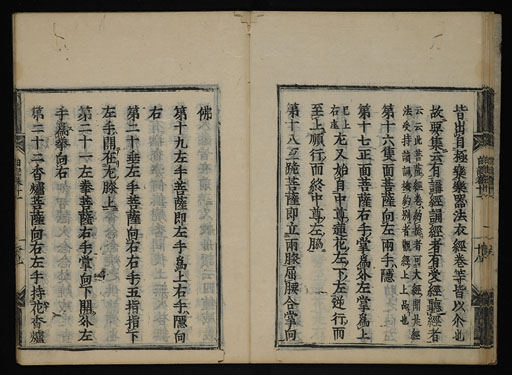 皆出自極樂樂器法衣經卷等皆以尒也
故要集云有講經誦經者有受經聽經者
第十六隻面菩薩向左兩手隱
第十七正面菩薩右手掌爲外左掌爲上
尤又始自中尊蓮花左下左逆行而
至上順行而終中尊左脇
第十八互跪菩薩即立兩膝屈腰合掌向
佛
第十九左手菩薩即左手爲上右手隱向
右
第二十垂左手菩薩向右右手五指指下
左手開在左膝上
第二十一左拳菩薩右手掌向下開外左
手爲拳向右
第二十二香爐菩薩向右左手持花香爐